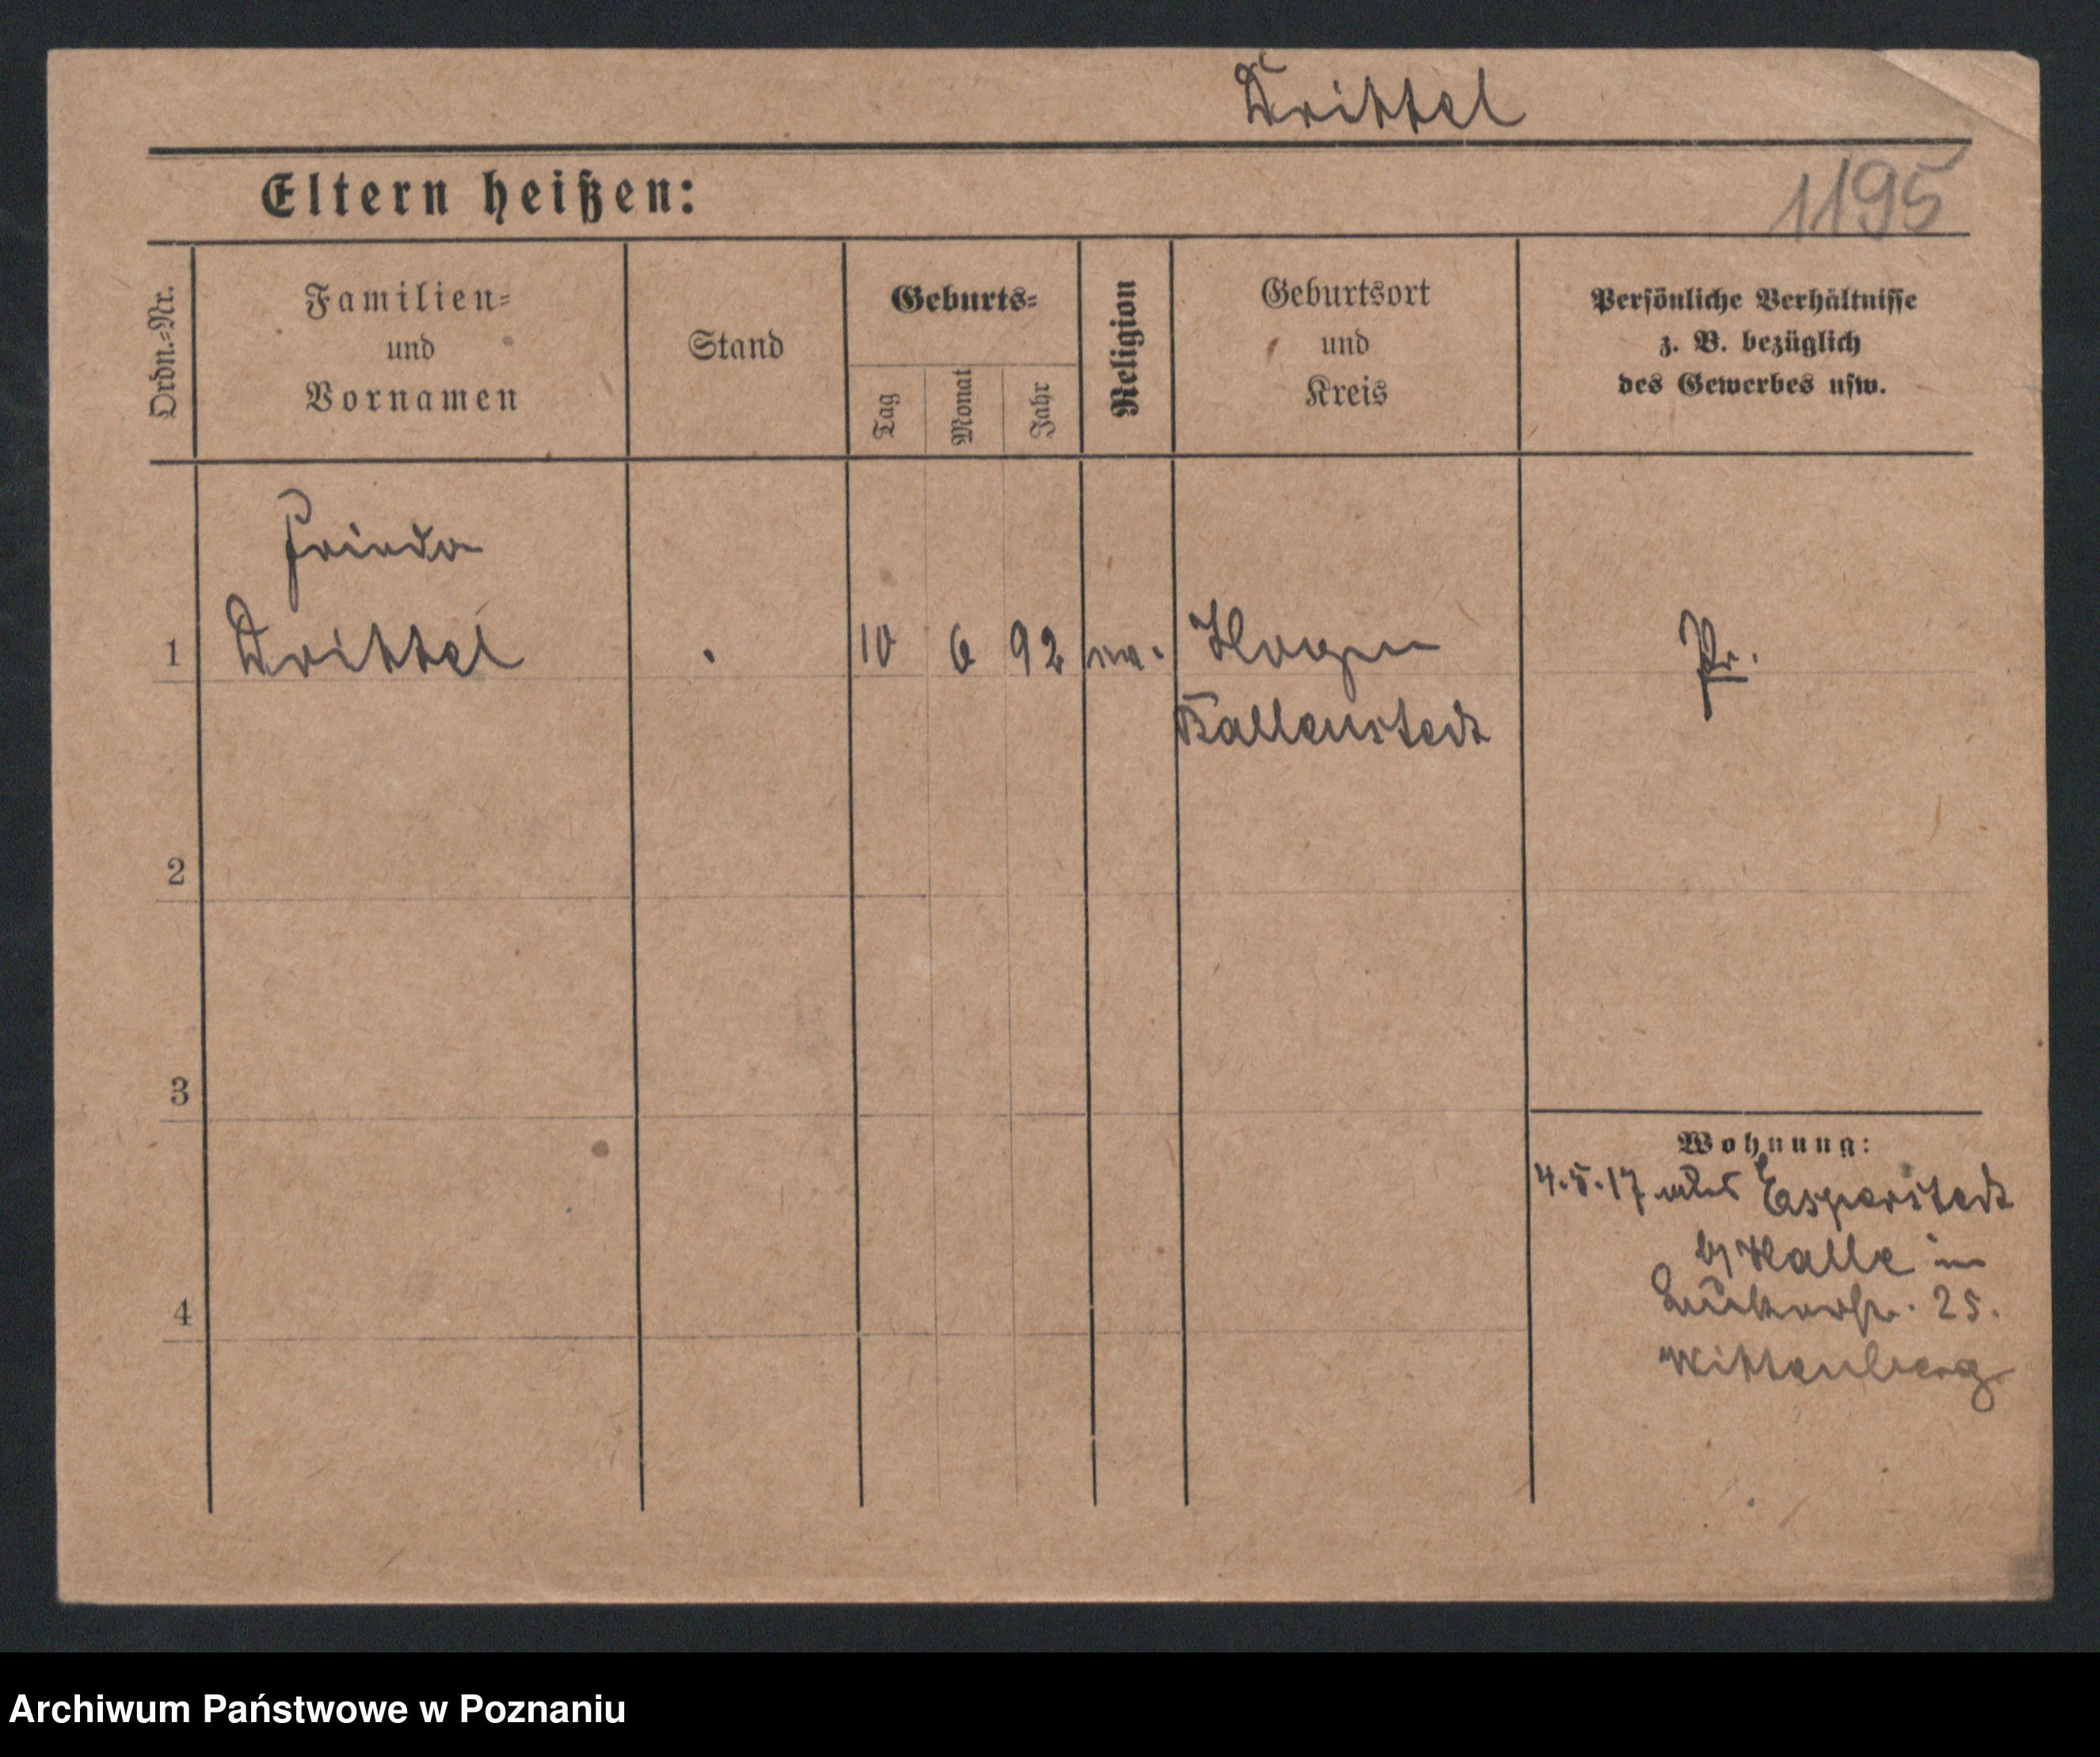 Drittel
Eltern heißen:
1195
Ordn.=Nr.
Familien=
und
Vornamen
Stand
Geburts=
Tag
Monat
Jahr
Religion
Geburtsort
und
Kreis
Persönliche Verhältnisse
z. B. bezüglich
des Gewerbes usw.
Frieda
1 Drittel . 10 6 92 Hogen Pr.
Ballenstedt
2
3
4
Wohnung:
4.5.17 Esperstedt
b/ Halle in
25.
Wittenberg
Archiwum Państwowe w Poznaniu